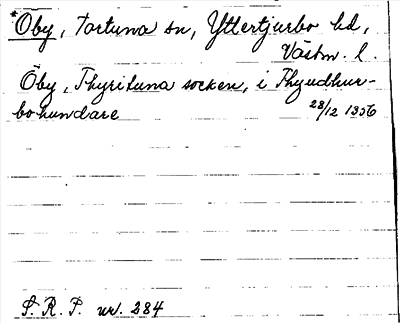 *Öby, Tortuna sn, Yttertjurbo hd,
Västm. l.
Öby, Thyrituna socken, i Thyudhur-
bohundare 28/12 1356
S. R. P. nr. 284